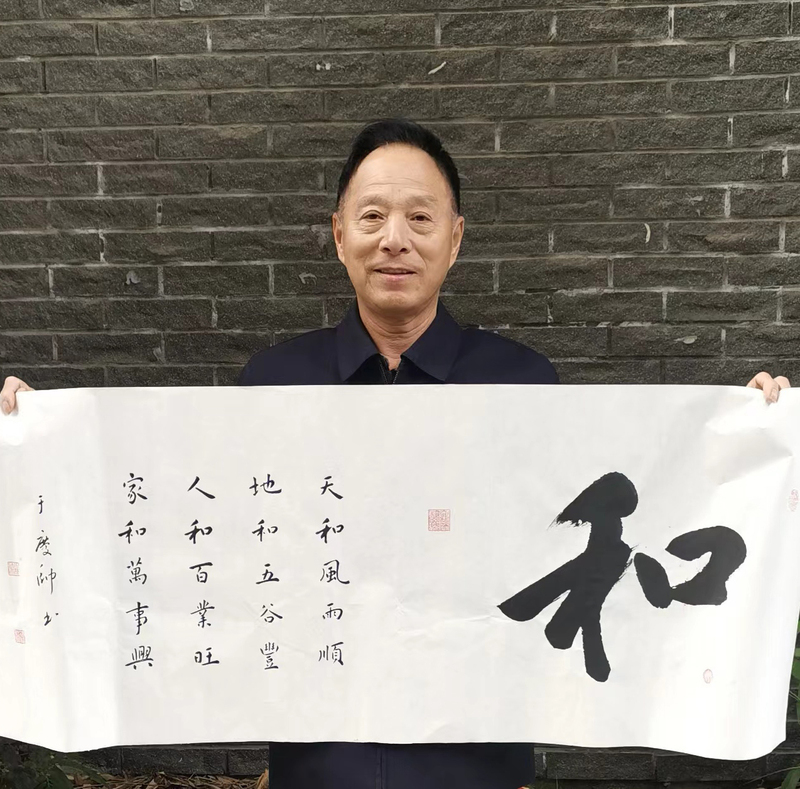 和
天和風雨順
地和五谷豐
人和百業旺
家和萬事興
于慶帥书